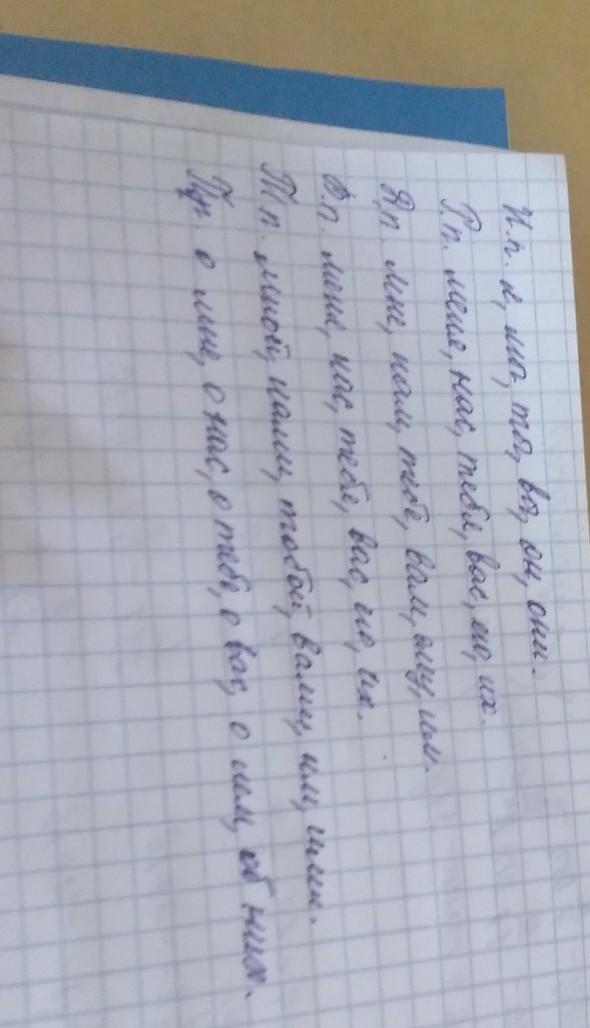 И.п. я, мы, ты, вы, он, они.
Р.п. меня, нас, тебя, вас, его, их.
Д.п. мне, нам, тебе, вам, ему, им.
В.п. меня, нас, тебя, вас, его, их.
Т.п. мной, нами, тобой, вами, им, ими.
Пр. о мне, о нас, о тебе, о вас, о нем, об них.